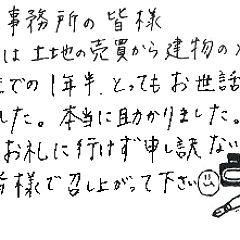 事務所の皆様
は土地の売買から建物の
での1年半、とってもお世話
した。本当に助かりました。
お礼に行けず申し訳ない
皆様で召し上がって下さい